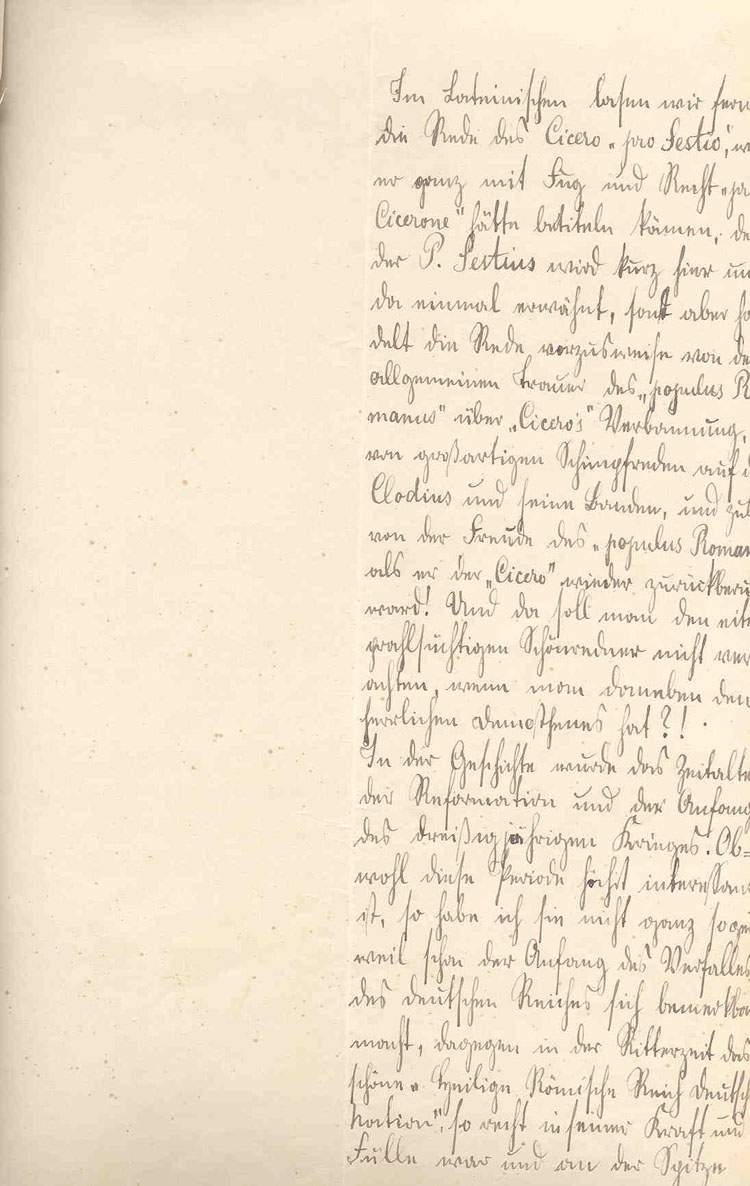 Im Lateinischen lasen wir fern
die Rede des Cicero „pro Sestio“, w
er ganz mit Fug und Recht „p
Cicerone“ hätte betiteln können, de
der P. Sestius wird kurz hier un
da einmal erwähnt, sonst aber ha
delt die Rede vorzusweise von de
allgemeinen Trauer des „populus R
manus“ über „Cicero's“ Verbannung,
von großartigen Schimpfreden auf d
Clodius und seine Banden, und zul
von der Freude des „populus Roman
als er der „Cicero“ wieder zurückberu
ward! Und da soll man den eit
prahlsüchtigen Schönredner nicht ver
achten, wenn man daneben den
herrlichen Demosthenes hat?!
In der Geschichte wurde das Zeitalte
der Reformation und der Anfang
des dreißigjährigen Krieges. Ob=
wohl diese Periode höchst interessan
ist, so habe ich sie nicht ganz so ge
weil schon der Anfang des Verfalles
des deutschen Reiches sich bemerkba
macht, dagegen in der Ritterzeit das
schöne „Heilige Römische Reich deutsch
Nation“, so recht in seiner Kraft und
Fülle war und an der Spitze